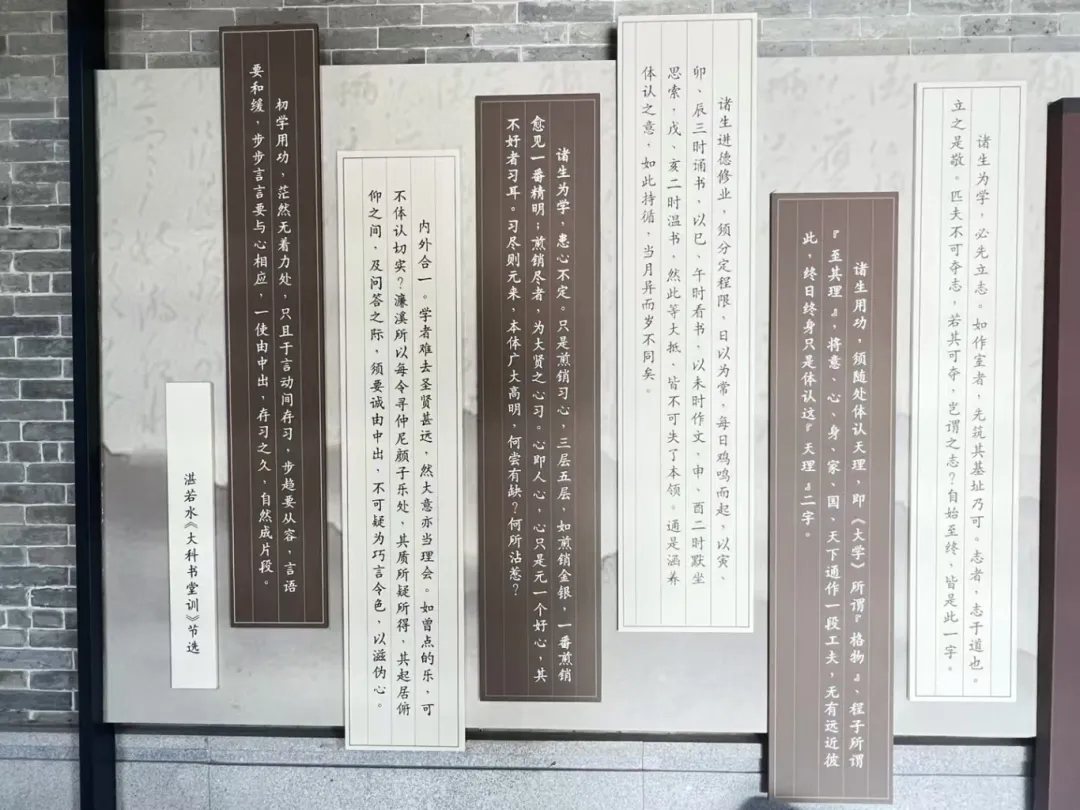 诸生为学，必先立志。如作室者，先筑其基址乃可。志者，志于道也。
立之是敬。匹夫不可夺志，若其可夺，岂谓之志？自始至终，皆是此一字。
诸生用功，须随处体认天理，即《大学》所谓『格物』、程子所谓
『至其理』，将意、心、身、家、国、天下通作一段工夫，无有远近彼
此，终日终身只是体认这『天理』二字。
诸生进德修业，须分定程限，日以为常，每日鸡鸣而起，以寅、
卯、辰三时诵书，以巳、午时看书，以未时作文，申、酉二时默坐
思索，戌、亥二时温书，然此等大抵，皆不可失了本领。通是涵养
体认之意，如此持循，当月异而岁不同矣。
诸生为学，患心不定。只是煎销习心，三层五层，如煎销金银，一番煎销
愈见一番精明；煎销尽者，为大贤之心习。心即人心，心只是元一个好心，其
不好者习耳。习尽则元来，本体广大高明，何尝有缺？何所沾惹？
内外合一。学者难去圣贤甚远，然大意亦当理会。如曾点的乐，可
不体认切实？濂溪所以每令寻仲尼颜子乐处，其质所疑所得，其起居俯
仰之间，及问答之际，须要诚由中出，不可疑为巧言令色，以滋伪心。
初学用功，茫然无着力处，只且于言动间存习，步趋要从容，言语
要和缓，步步言言要与心相应，一使由中出，存习之久，自然成片段。
湛若水《大科书堂训》节选